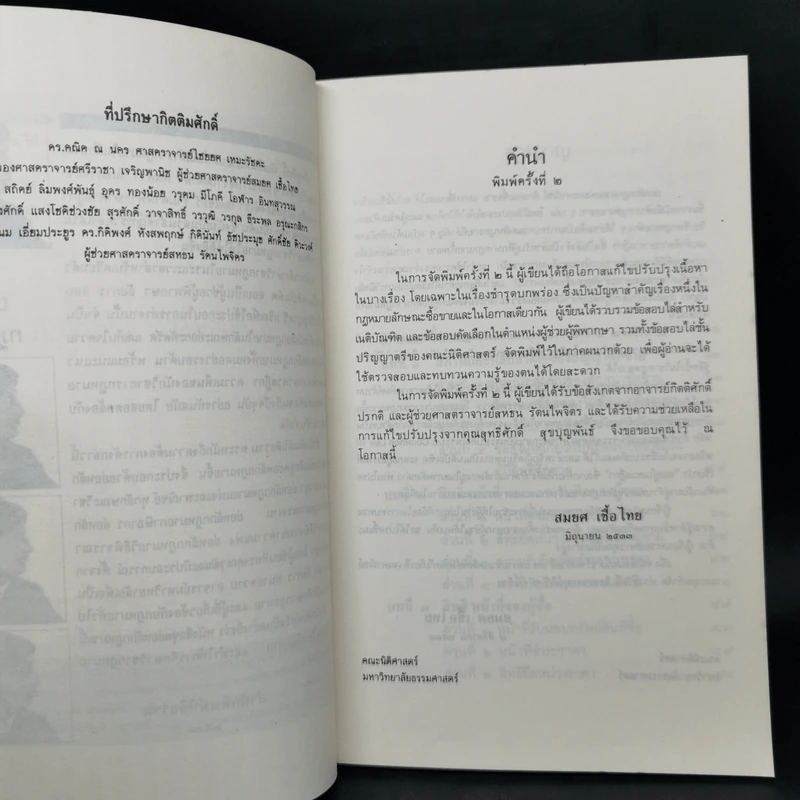 ที่ปรึกษากิตติมศักดิ์
ดร.คณิต ณ นคร ศาสตราจารย์ไชยยศ เหมะรัชตะ
องศาสตราจารย์ศรีราชา เจริญพานิช ผู้ช่วยศาสตราจารย์สมยศ เชื้อไทย
สถิตย์ ลิ่มพงศ์พันธุ์ อุดร ทองน้อย วรุตม มีโภคี โอฬาร อินทุสุวรรณ
งศักดิ์ แสงโชติช่วงชัย สุรศักดิ์ วาจาสิทธิ์ วรวุฒิ วรกุล ธีระพล อรุณะกสิกร
นม เอี่ยมประยูร ดร.กิติพงศ์ หังสพฤกษ์ กิตินันท์ ธัชประมุข ศักดิ์ชัย
ผู้ช่วยศาสตราจารย์สหธน รัตนไพจิตร
คำนำ
พิมพ์ครั้งที่ ๒
ในการจัดพิมพ์ครั้งที่ ๒ นี้ ผู้เขียนได้ถือโอกาสแก้ไขปรับปรุงเนื้อหา
ในบางเรื่อง โดยเฉพาะในเรื่องชำรุดบกพร่อง ซึ่งเป็นปัญหาสำคัญเรื่องหนึ่งใน
กฎหมายลักษณะซื้อขายและในโอกาสเดียวกัน ผู้เขียนได้รวบรวมข้อสอบไล่สำหรับ
เนติบัณฑิต และข้อสอบคัดเลือกในตำแหน่งผู้ช่วยผู้พิพากษา รวมทั้งข้อสอบไล่ชั้น
ปริญญาตรีของคณะนิติศาสตร์ จัดพิมพ์ไว้ในภาคผนวกด้วย เพื่อผู้อ่านจะได้
ใช้ตรวจสอบและทบทวนความรู้ของตนได้โดยสะดวก
ในการจัดพิมพ์ครั้งที่ ๒ นี้ ผู้เขียนได้รับข้อสังเกตจากอาจารย์กิตติศักดิ์
ปรกติ และผู้ช่วยศาสตราจารย์สหธน รัตนไพจิตร และได้รับความช่วยเหลือใน
การแก้ไขปรับปรุงจากคุณสุทธิศักดิ์ สุขบุญพันธ์ จึงขอขอบคุณไว้ ณ
โอกาสนี้
สมยศ เชื้อไทย
มิถุนายน ๒๕๓๓
คณะนิติศาสตร์
มหาวิทยาลัยธรรมศาสตร์